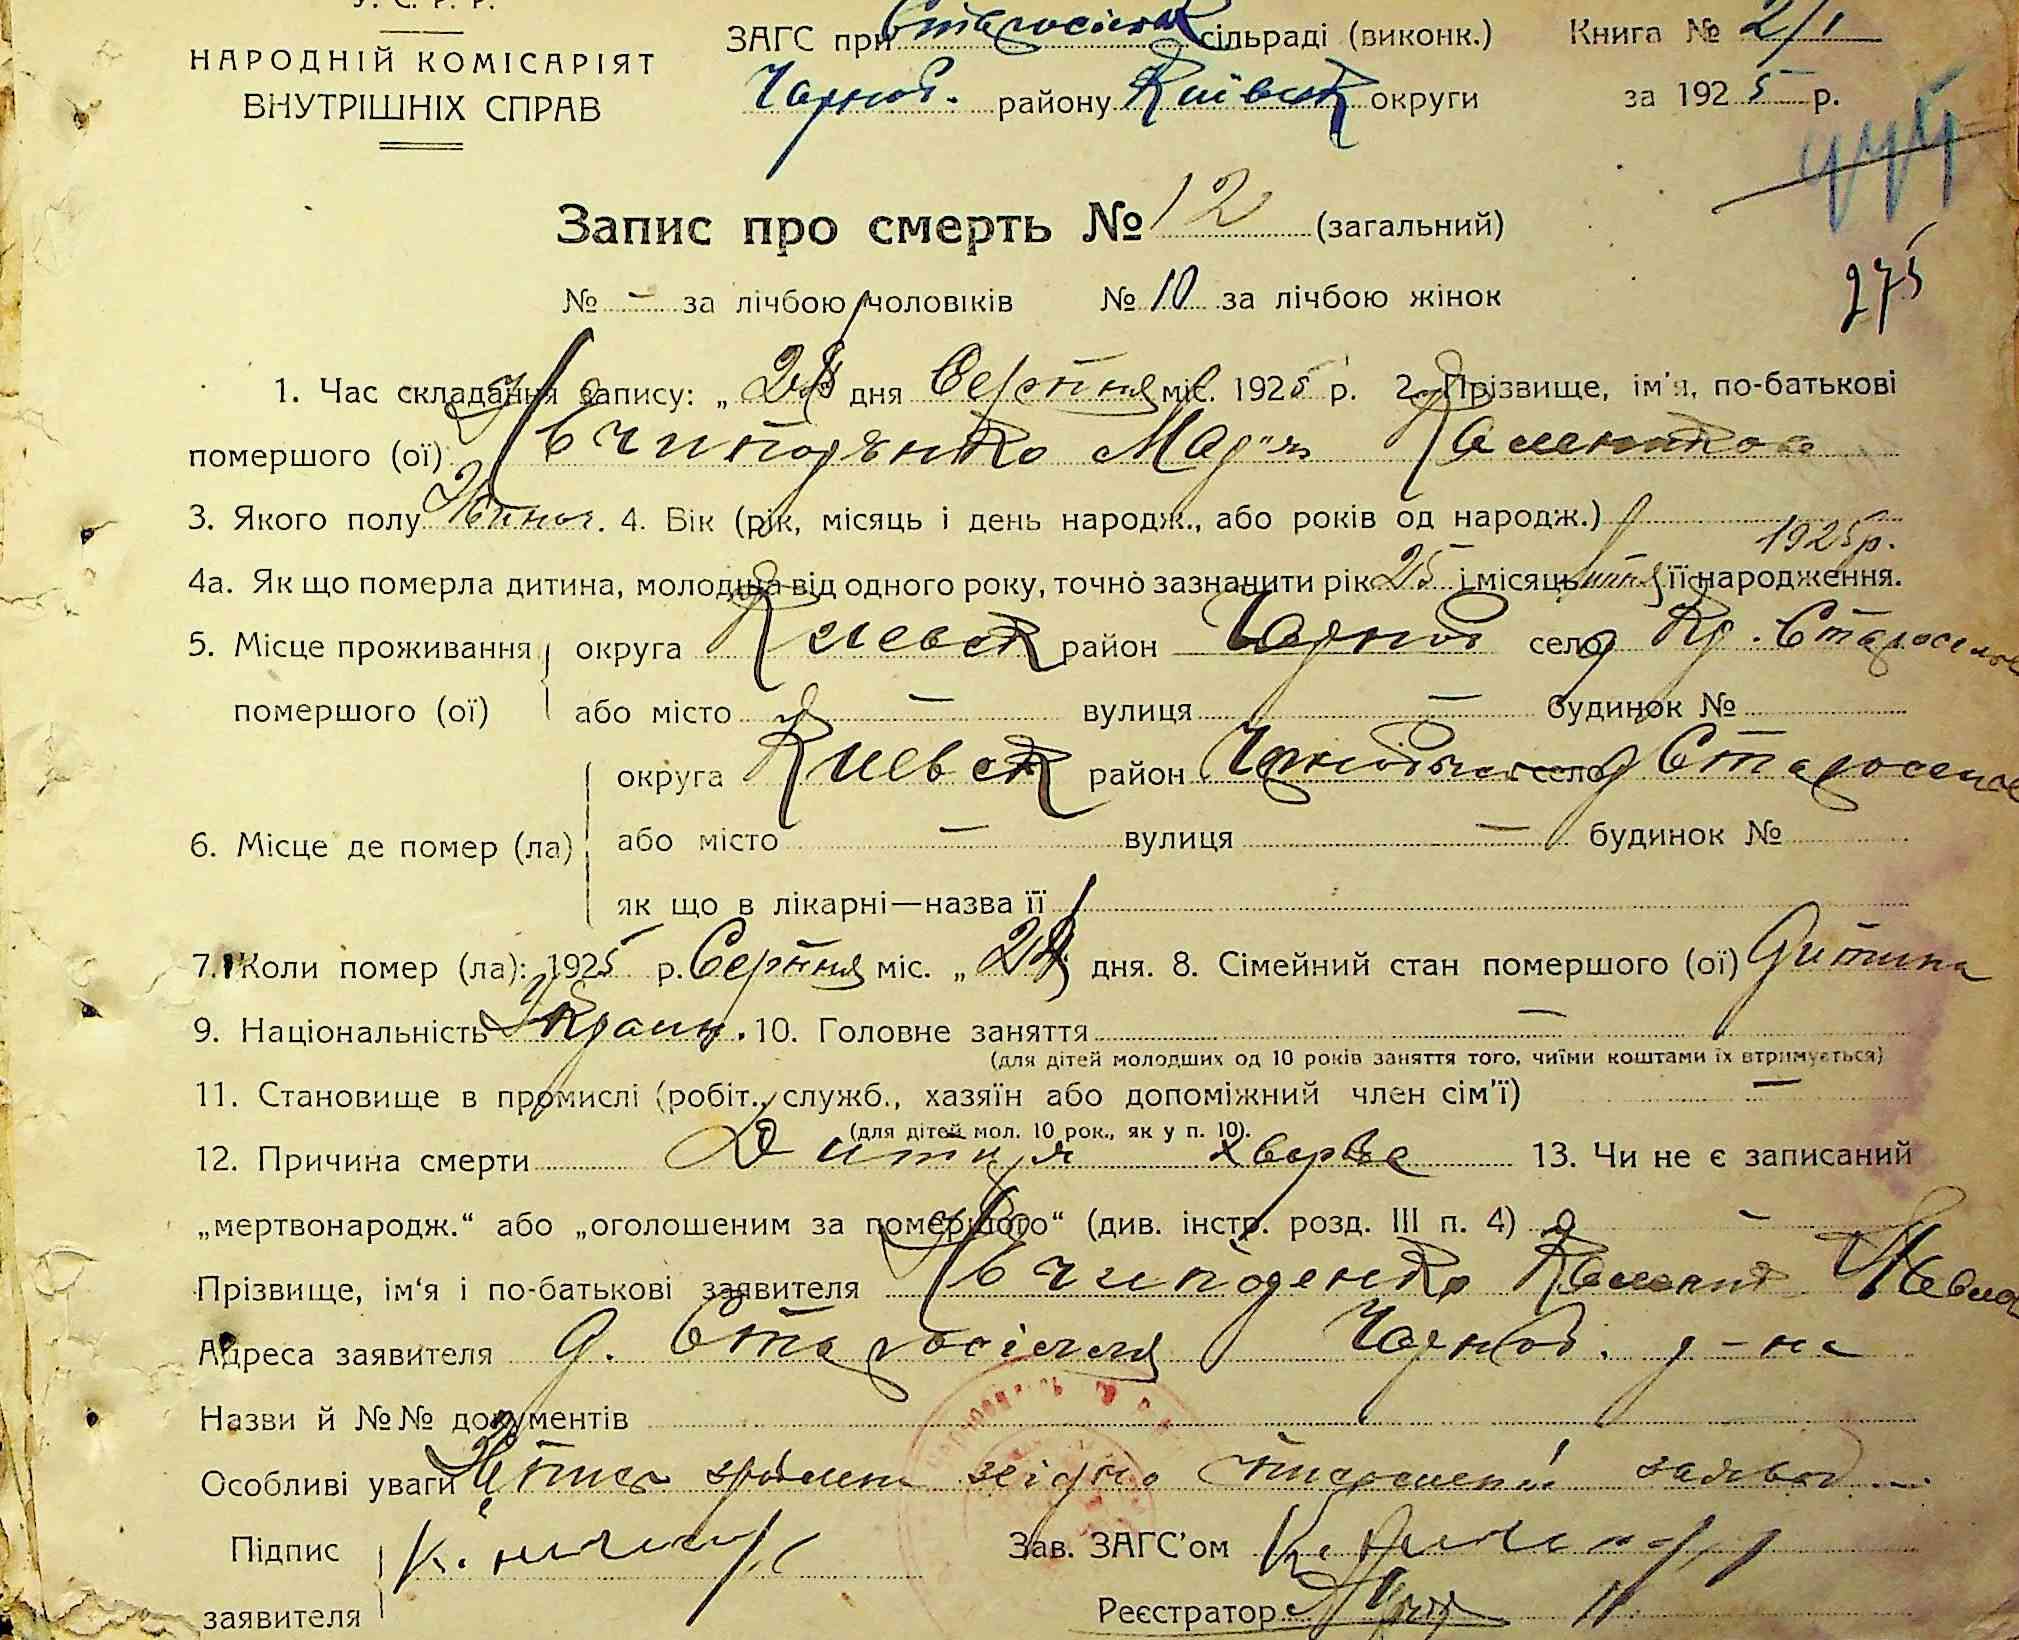 У. С. Р. Р.
НАРОДНІЙ КОМІСАРІЯТ
ВНУТРІШНІХ СПРАВ
ЗАГС при Старосільск сільраді (виконк.)
Чорноб. району Київск округи
Книга № 2/1
за 1925 р.
Запис про смерть № 12 (загальний)
275
№ – за лічбою чоловіків № 10 за лічбою жінок
1. Час складання запису: „ дня Серпня міс. 1925 р. 2. Прізвище, ім'я, по-батькові
помершого (ої) Нечипоренко Мар'я
3. Якого полу Жіноч. 4. Вік (рік, місяць і день народж., або років од народж.)
1925 р.
4а. Як що померла дитина, молодша від одного року, точно зазначити рік 25 і місяць її народження.
5. Місце проживання округа Киевск район Чорноб село Старосілля
помершого (ої) або місто – вулиця – будинок №
округа Киевск район село Старосілля
6. Місце де помер (ла) або місто – вулиця – будинок №
як що в лікарні—назва її
7. Коли помер (ла): 1925 р. Серпня міс. „ дня. 8. Сімейний стан помершого (ої) Дитина
9. Національність Україн. 10. Головне заняття –
(для дітей молодших од 10 років заняття того, чиїми коштами їх втримується)
11. Становище в промислі (робіт., служб., хазяїн або допоміжний член сім'ї) –
(для дітей мол. 10 рок., як у п. 10).
12. Причина смерти Дитяча хвороба 13. Чи не є записаний
„мертвонародж.“ або „оголошеним за помершого“ (див. інстр. розд. III п. 4) –
Прізвище, ім'я і по-батькові заявителя Нечипоренко
Адреса заявителя с. Старосілля Чорноб. р-на
Назви й №№ документів
Особливі уваги Запис зроблено згідно заяви
Підпис
заявителя
Зав. ЗАГС'ом
Реєстратор